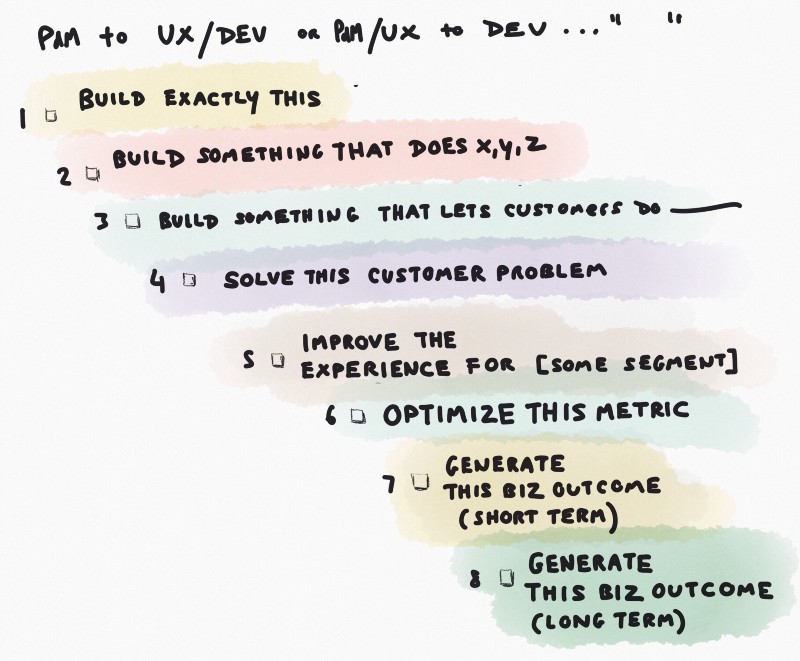 PAM to UX/DEV or PAM/UX to DEV ... " "
1 BUILD EXACTLY THIS
2 BUILD SOMETHING THAT DOES X,Y,Z
3 BUILD SOMETHING THAT LETS CUSTOMERS DO ___
4 SOLVE THIS CUSTOMER PROBLEM
5 IMPROVE THE
EXPERIENCE FOR [SOME SEGMENT]
6 OPTIMIZE THIS METRIC
7 GENERATE
THIS BIZ OUTCOME
(SHORT TERM)
8 GENERATE
THIS BIZ OUTCOME
(LONG TERM)